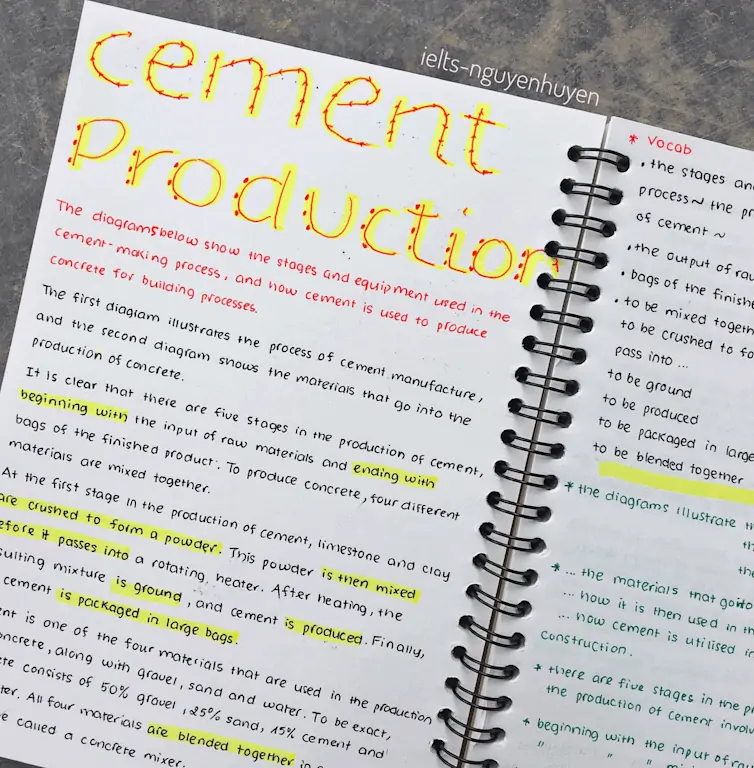 cement
Production
ielts-nguyenhuyen
The diagrams below show the stages and equipment used in the
cement-making process, and how cement is used to produce
concrete for building processes.
The first diagram illustrates the process of cement manufacture,
and the second diagram shows the materials that go into the
production of concrete.
It is clear that there are five stages in the production of cement,
beginning with the input of raw materials and ending with
bags of the finished product. To produce concrete, four different
materials are mixed together.
At the first stage in the production of cement, limestone and clay
are crushed to form a powder. This powder is then mixed
before it passes into a rotating heater. After heating, the
mixture is ground, and cement is produced. Finally,
cement is packaged in large bags.
is one of the four materials that are used in the production
concrete, along with gravel, sand and water. To be exact,
consists of 50% gravel, 25% sand, 15% cement and
All four materials are blended together
called a concrete mixer.
* Vocab
• the stages
process ~ the
of cement ~
• the output of
• bags of the
• to be mixed
to be crushed to
pass into ...
to be ground
to be produced
to be packaged in
to be blended together
* the diagrams illustrate
* ... the materials that go into
... how it is then used in
... how cement is utilised in
construction.
* there are five stages in the
the production of cement
* beginning with the input of
" " "